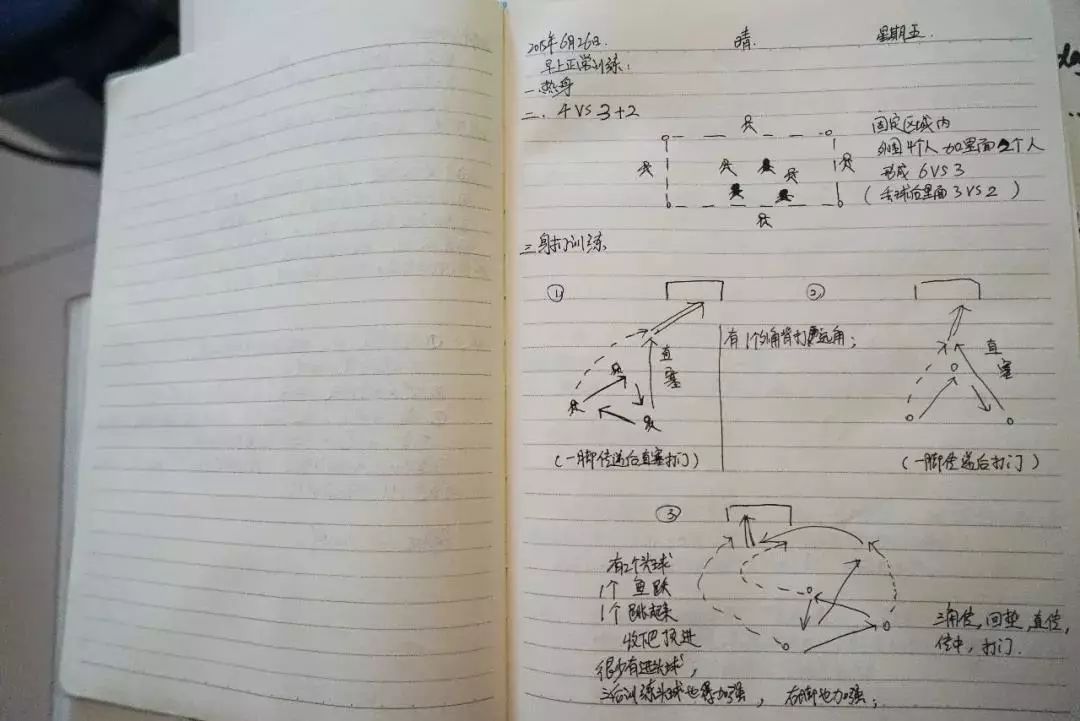 2015年6月26日. 晴. 星期五
早上正常训练:
一.热身
二. 4 VS 3+2
固定区域内
外围4个人加里面2个人
形成 6 VS 3
(丢球后里面 3 VS 2)
三.射门训练
①
直塞
(一脚传递后直塞打门)
有1个外脚背打远角;
②
直塞
(一脚传递后打门)
③
有2个头球
1个 鱼跃
1个 跳起来
收下把顶进
很少有进头球,
三角传,回垫,直传,
传中,打门.
以后训练头球也得加强, 右脚也加强;